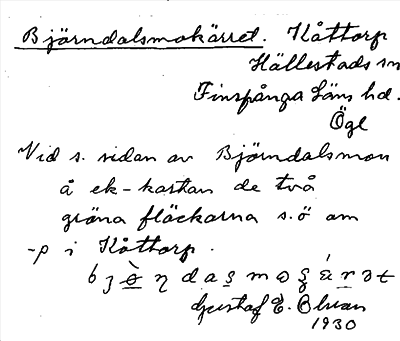 Björndalsmokärret. Kåttorp
Hällestads sn
Finspånga läns hd.
Ögl
Vid s. sidan av Björndalsmon
å ek-kartan de två
gröna fläckarna s.ö om
-p i Kåttorp.
Gustaf E.
1930